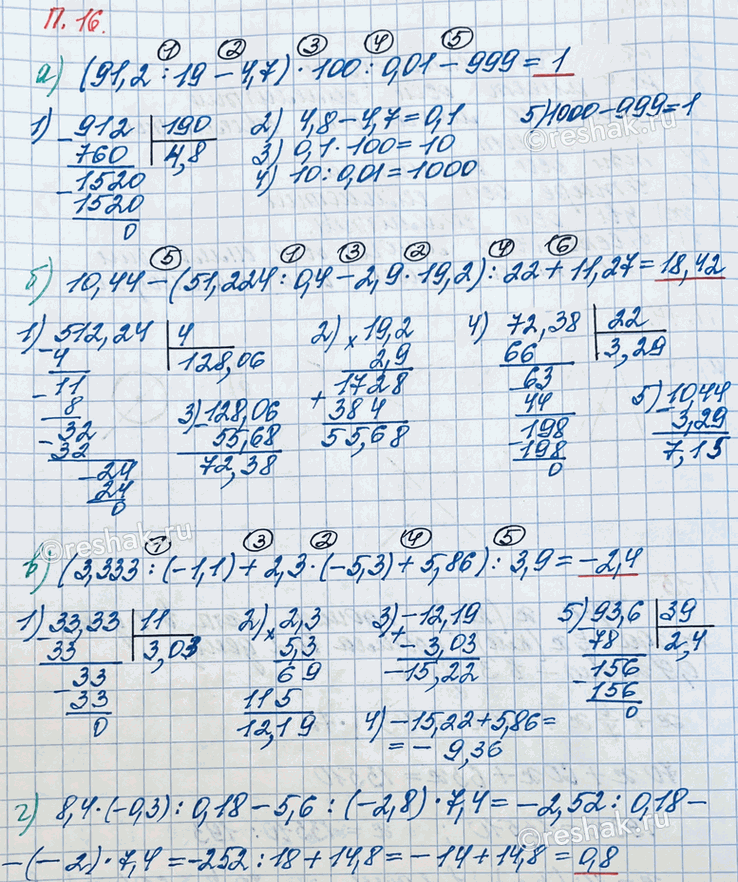 П. 16.
① ② ③ ④ ⑤
а) (91,2 : 19 − 4,7) · 100 : 0,01 − 999 = 1
1) −912 | 190
760 | 4,8
−1520
1520
0
2) 4,8 − 4,7 = 0,1
3) 0,1 · 100 = 10
4) 10 : 0,01 = 1000
5) 1000 − 999 = 1
⑤ ① ③ ② ④ ⑥
б) 10,44 − (51,224 : 0,4 − 2,9 · 19,2) : 22 + 11,27 = 18,42
1) −512,24 | 4
4 | 128,06
−11
8
−32
32
−24
24
0
2) × 19,2
2,9
+ 1728
384
55,68
3) −128,06
55,68
72,38
4) 72,38 | 22
66 | 3,29
63
44
−198
198
0
5) −10,44
3,29
7,15
① ③ ② ④ ⑤
в) (3,333 : (−1,1) + 2,3 · (−5,3) + 5,86) : 3,9 = −2,4
1) −33,33 | 11
33 | 3,03
−33
33
0
2) × 2,3
5,3
69
115
12,19
3) + −12,19
−3,03
−15,22
4) −15,22 + 5,86 =
= − 9,36
5) −93,6 | 39
78 | 2,4
−156
156
0
г) 8,4 · (−0,3) : 0,18 − 5,6 : (−2,8) · 7,4 = −2,52 : 0,18 −
− (−2) · 7,4 = −252 : 18 + 14,8 = −14 + 14,8 = 0,8
reshak.ru
reshak.ru
reshak.ru